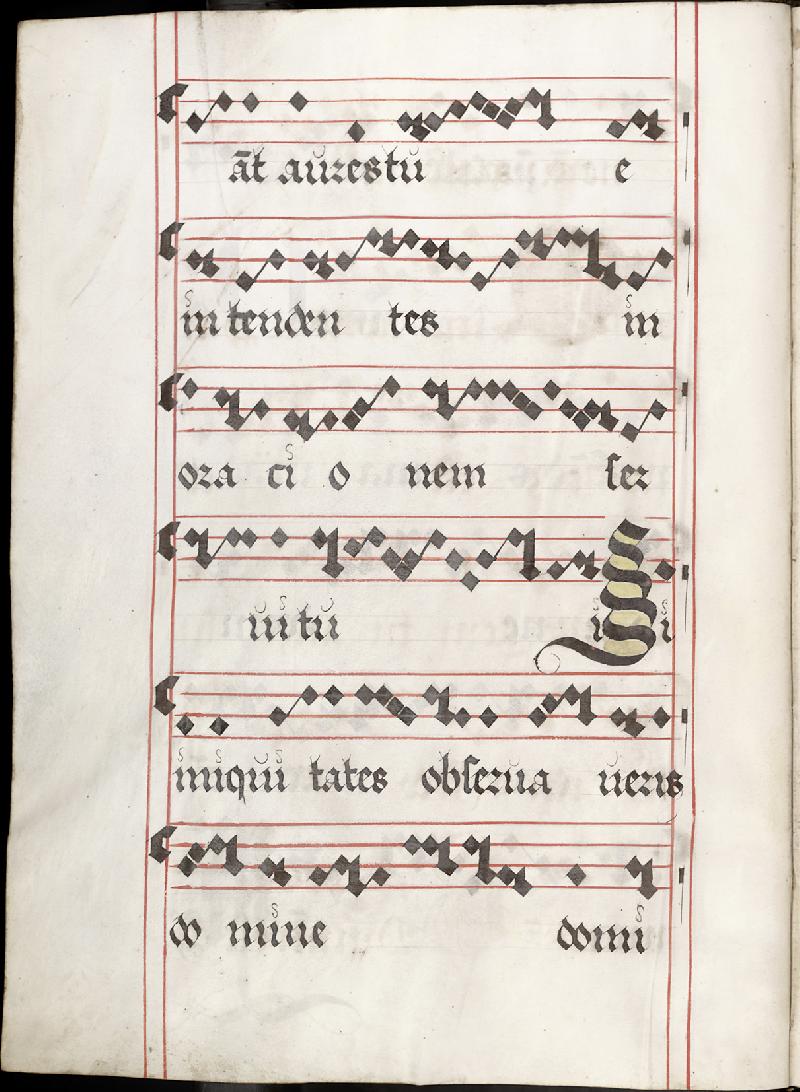 āt aures tu e
in tenden tes in
ora ci o nem ser
ui tu
iniqui tates obserua ueris
do mine domi